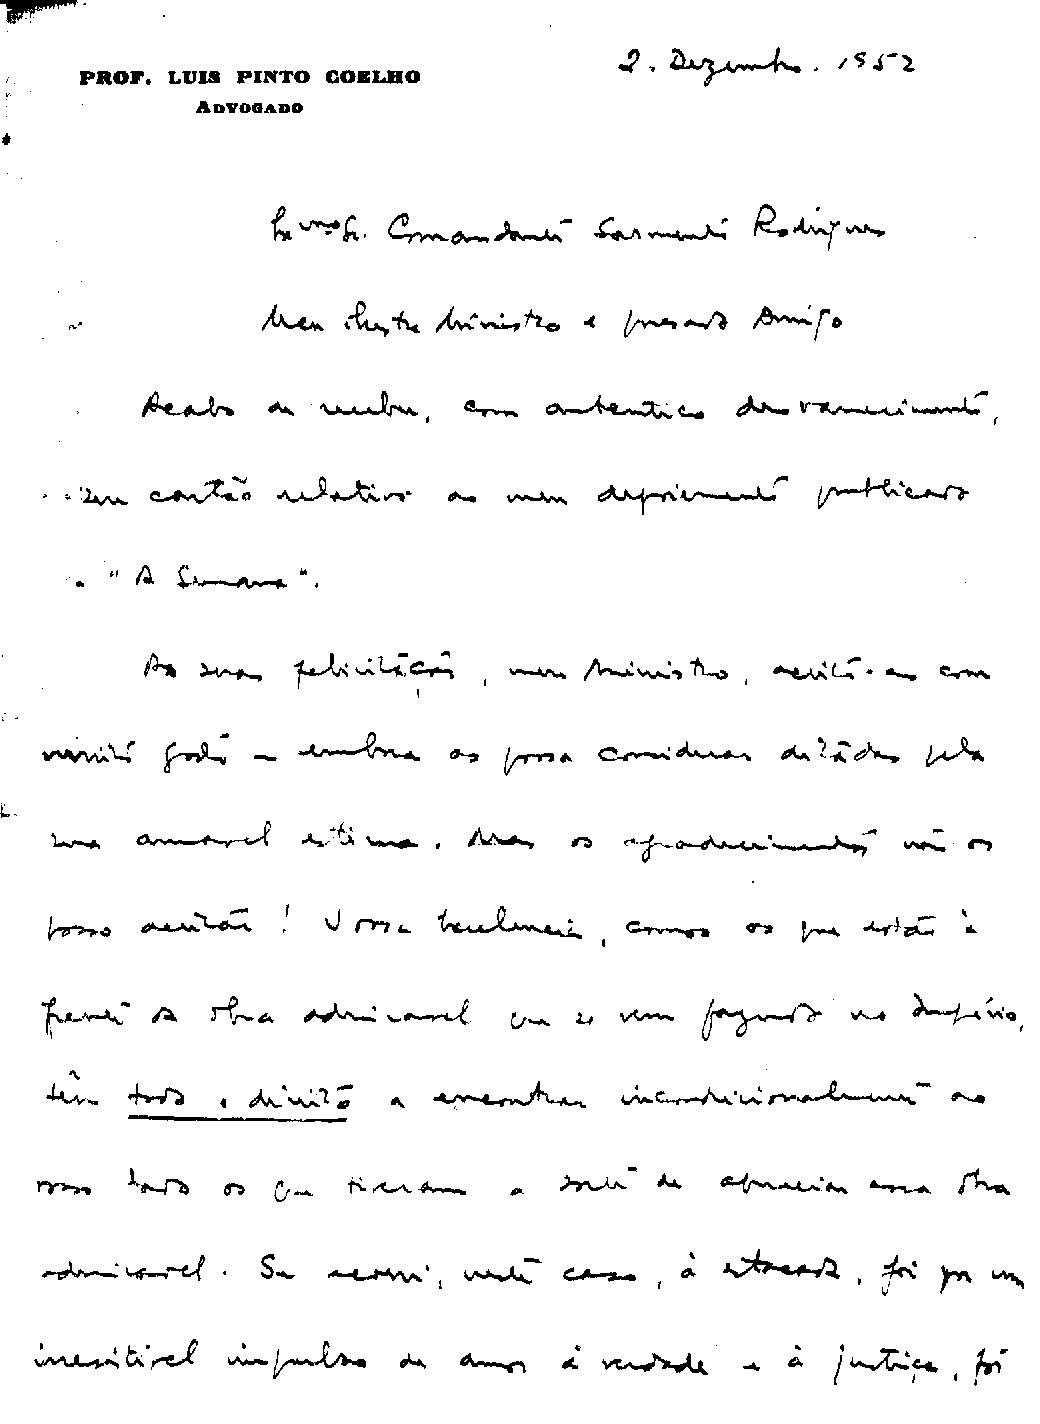 PROF. LUIS PINTO COELHO
ADVOGADO
2. Dezembro. 1952
Exmo Sr. Comandante Sarmento Rodrigues
Meu ilustre Ministro e presado Amigo
Acabo de receber, com autentico desvanecimento,
seu cartão relativo ao meu depoimento publicado
n "A Semana".
As suas felicitações, meu Ministro, aceito-as com
muito gosto – embora as possa considerar ditadas pela
sua amavel estima. Mas os agradecimentos não os
posso aceitar! Vossa Excelencia, como os que estão à
frente da obra admiravel que se vem fazendo no Império,
têm todo o direito a encontrar incondicionalmente ao
vosso lado os que tiveram a sorte de apreciar essa obra
admiravel. Se acorri, neste caso, à estacada, foi por um
irresistivel impulso de amor à verdade e à justiça, foi